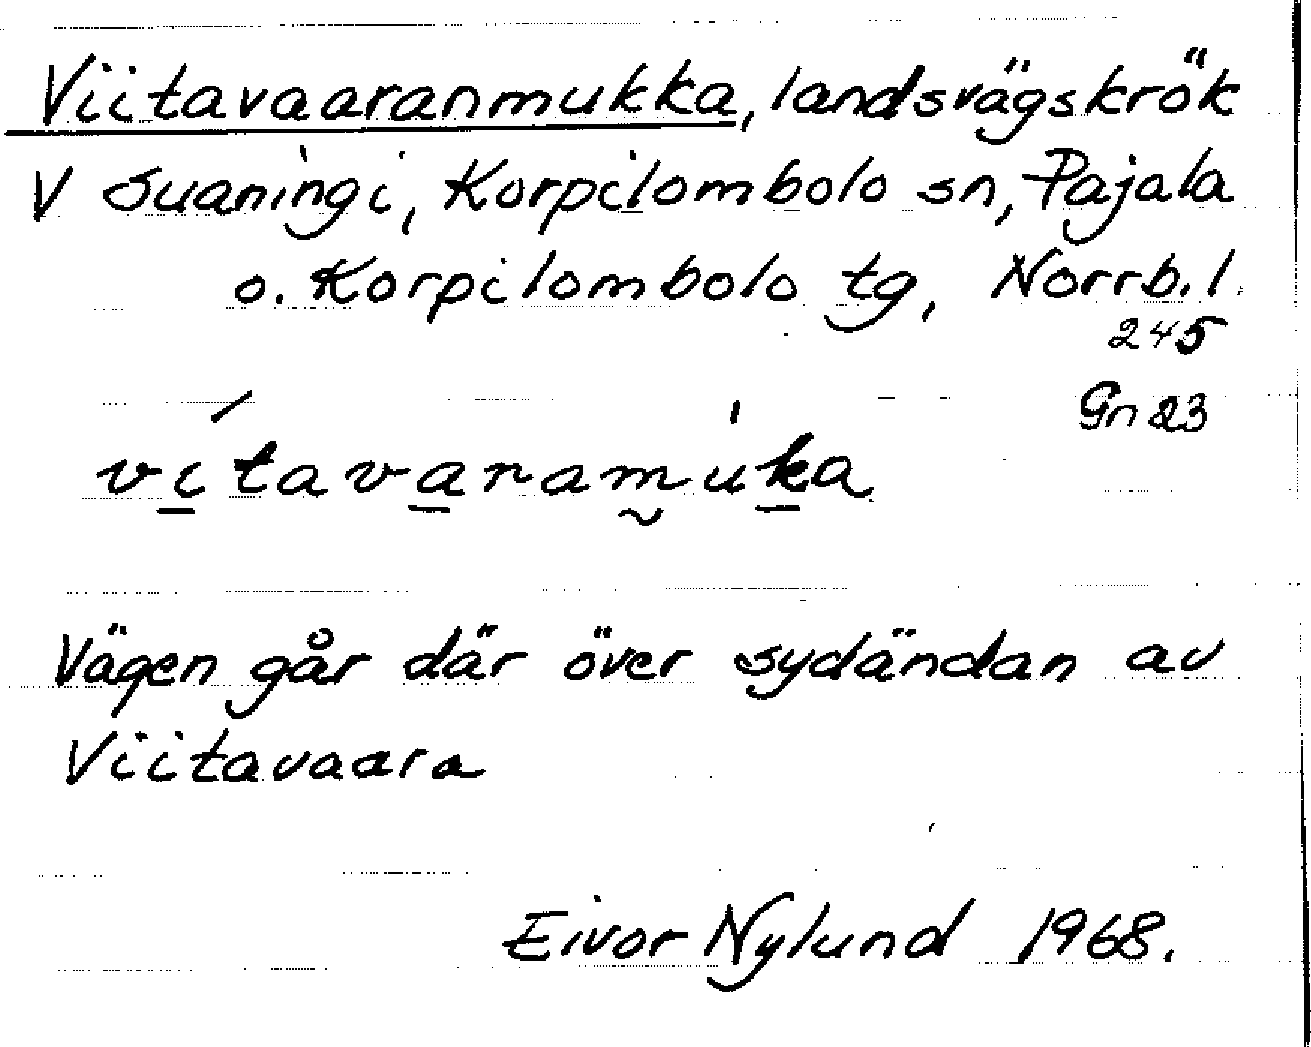 Viitavaaranmukka, landsvägskrök
V Suaningi, Korpilombolo sn, Pajala
o. Korpilombolo tg, Norrb. l.
245
Gn 23
v̀í̲tava̲ram̰u̍k̲a
Vägen går där över sydändan av
Viitavaara
Eivor Nylund 1968.